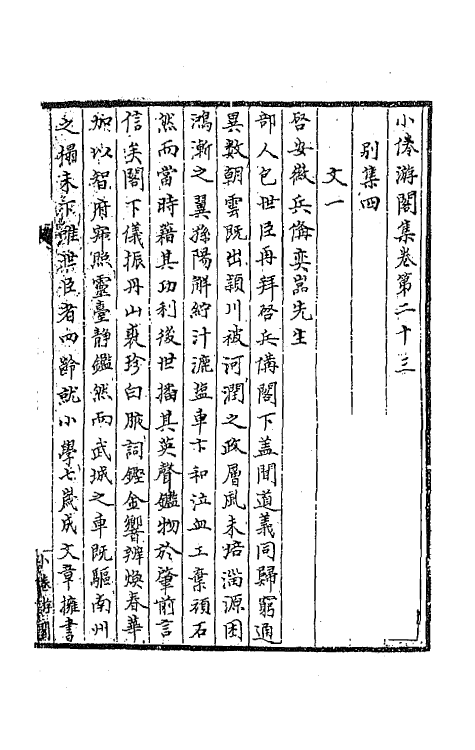 小倦游閣集卷第二十三
別集四
文一
啓安徽兵備奕嵓先生
部人包世臣再拜啓兵備閣下蓋聞道義同歸窮通
異數朝雲既出潁川被河潤之政層風未培湍源困
鴻漸之翼孫陽解紵汁漉鹽車卞和泣血工棄頑石
然而當時藉其功利後世播其英聲鑑物於肇前言
信矣閣下儀振丹山裘珍白腋詞鏗金響辨煥春華
加以智府宷照靈臺靜鑑然而武城之車既驅南州
之榻未下雖世臣者兩齡就小學七歲成文章擁書
小倦游閣